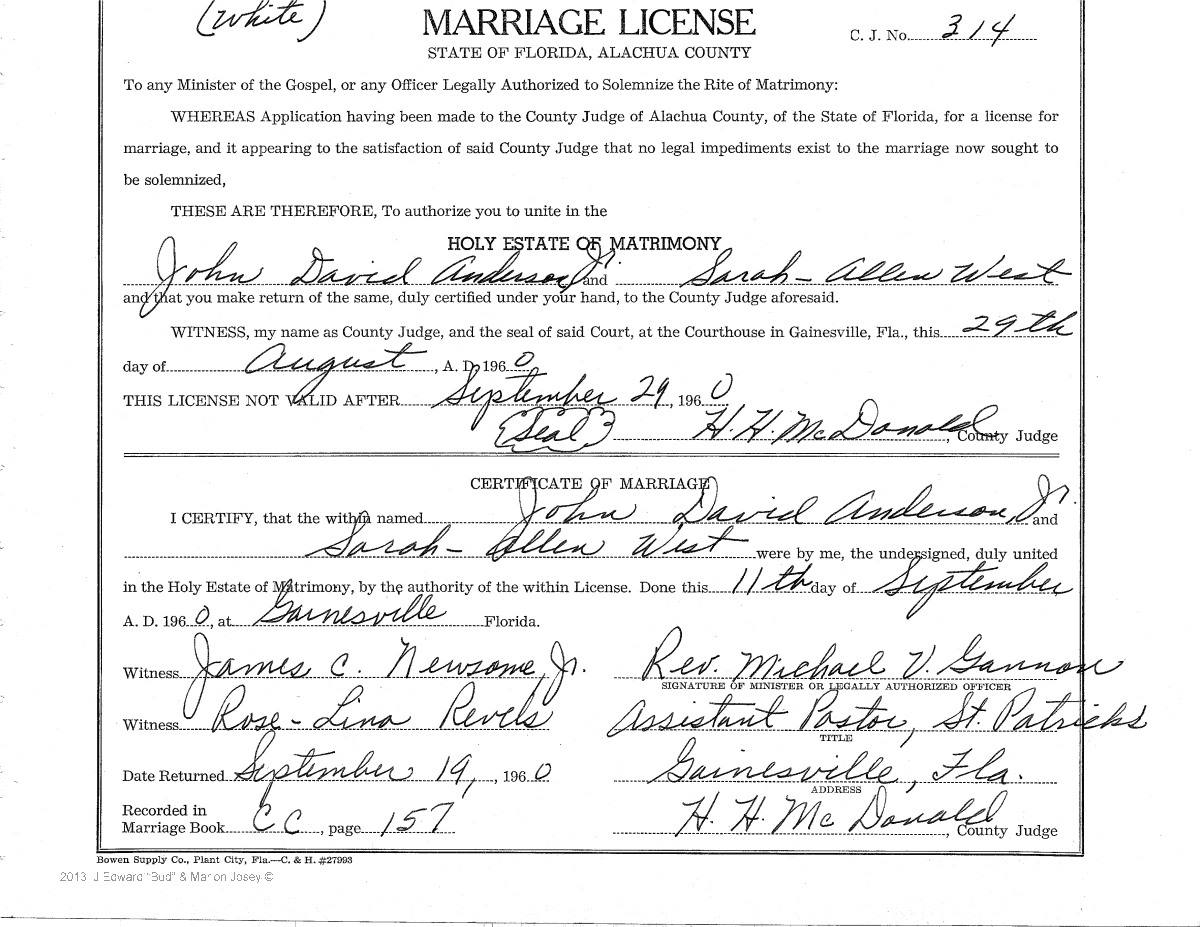 (White)
MARRIAGE LICENSE
C. J. No. 314
STATE OF FLORIDA, ALACHUA COUNTY
To any Minister of the Gospel, or any Officer Legally Authorized to Solemnize the Rite of Matrimony:
WHEREAS Application having been made to the County Judge of Alachua County, of the State of Florida, for a license for
marriage, and it appearing to the satisfaction of said County Judge that no legal impediments exist to the marriage now sought to
be solemnized,
THESE ARE THEREFORE, To authorize you to unite in the
HOLY ESTATE OF MATRIMONY
John David Anderson, Jr. and Sarah-Allen West
and that you make return of the same, duly certified under your hand, to the County Judge aforesaid.
WITNESS, my name as County Judge, and the seal of said Court, at the Courthouse in Gainesville, Fla., this 29th
day of August, A. D. 1960
THIS LICENSE NOT VALID AFTER September 29, 1960
(Seal) H. H. McDonald, County Judge
CERTIFICATE OF MARRIAGE
I CERTIFY, that the within named John David Anderson, Jr. and
Sarah-Allen West were by me, the undersigned, duly united
in the Holy Estate of Matrimony, by the authority of the within License. Done this 11th day of September
A. D. 1960, at Gainesville Florida.
Witness James C. Newsome, Jr. Rev. Michael V. Gannon
SIGNATURE OF MINISTER OR LEGALLY AUTHORIZED OFFICER
Witness Rose-Lina Revels Assistant Pastor, St. Patricks
TITLE
Date Returned September 19, 1960 Gainesville, Fla.
ADDRESS
Recorded in
Marriage Book CC, page 157 H. H. McDonald, County Judge
Bowen Supply Co., Plant City, Fla.—C. & H. #27993
2013 J Edward "Bud" & Marion Josey ©